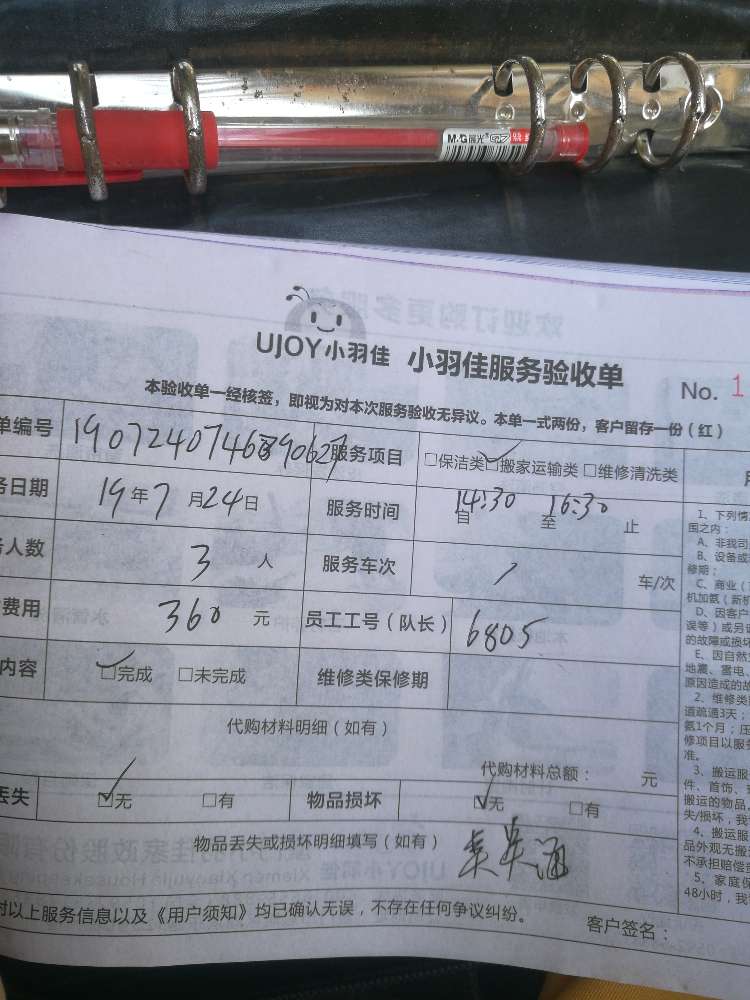 M&G 晨光
UJOY小羽佳 小羽佳服务验收单
No. 1
本验收单一经核签，即视为对本次服务验收无异议。本单一式两份，客户留存一份（红）
单编号 服务项目 □保洁类 □搬家运输类 □维修清洗类
务日期 19年7月24日 服务时间 自14:30至16:30止
人数 3人 服务车次 1 车/次
费用 360元 员工工号（队长） 6805
内容 □完成 □未完成 维修类保修期
代购材料明细（如有）
代购材料总额： 元
丢失 □无 □有 物品损坏 □无 □有
物品丢失或损坏明细填写（如有）
对以上服务信息以及《用户须知》均已确认无误，不存在任何争议纠纷。
客户签名：
1、下列情
围之内：
A、非我司
B、设备或
修期；
C、商业（
机加氨（新机
D、因客户
误等）或另
的故障或损坏
E、因自然
地震、雷电、
原因造成的故
2、维修类
道疏通3天；
氨1个月；压
修项目以服务
准。
3、搬运服
件、首饰、
搬运的物品，
失/损坏，我
4、搬运服
品外观无搬
不承担赔偿
5、家庭保
48小时，我